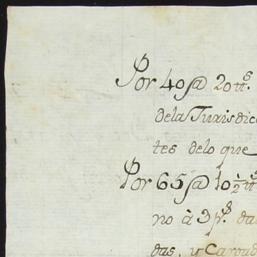 Por 40@ 20 tt̃s.
dela Turisdic
tes delo que
Por 65@ 10½ tt̃
no à 3 p.s da
das, y Carand